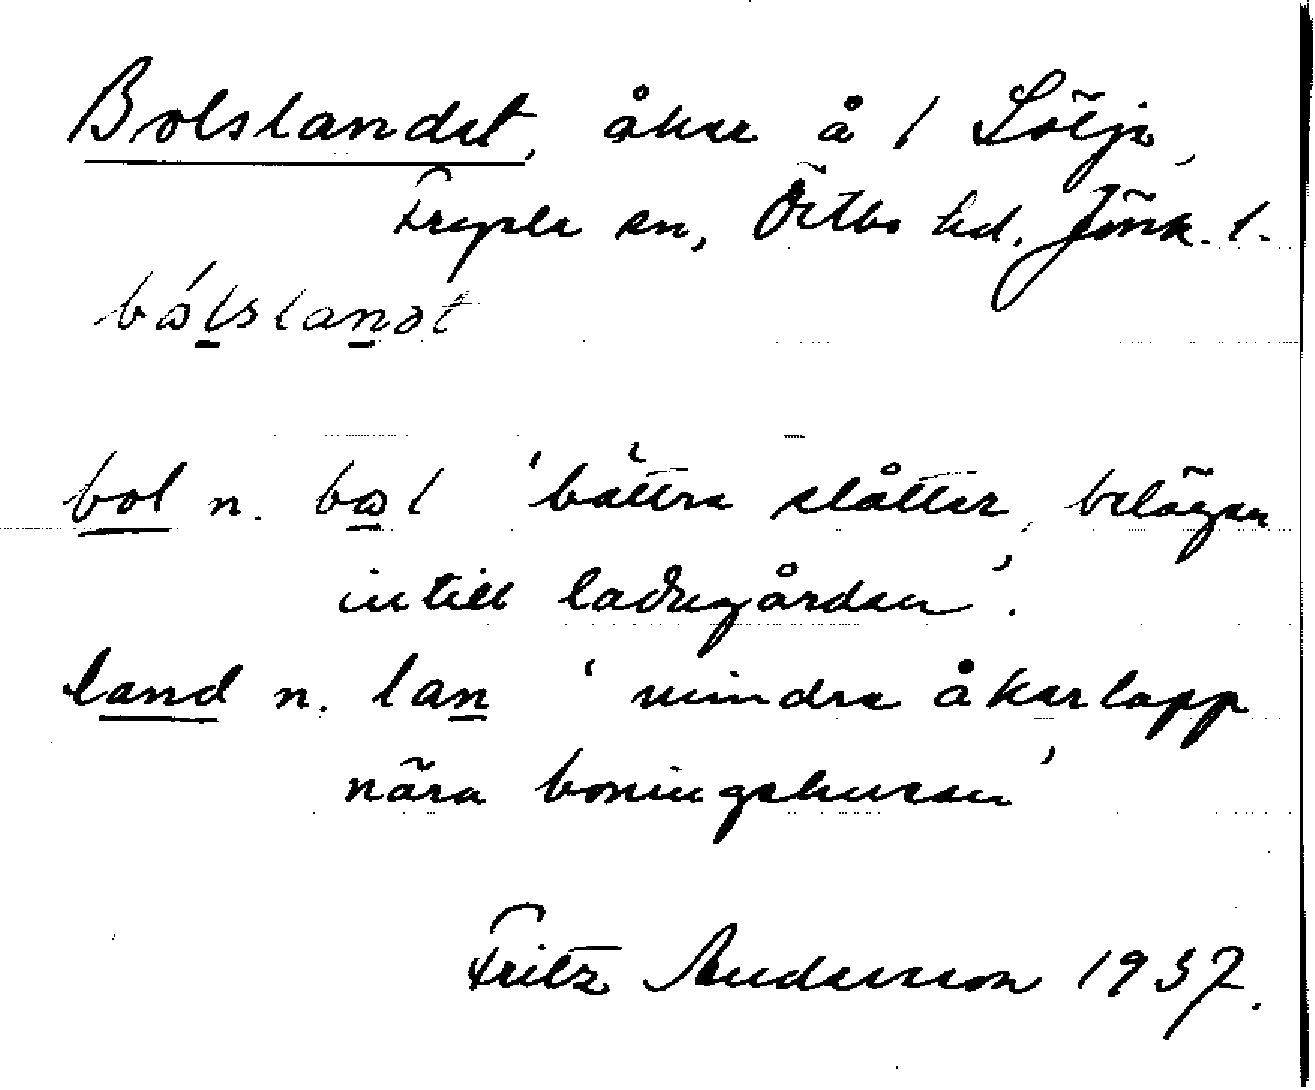 Bolslandet, åker å 1 Sölje,
Fryele sn, Östbo hd. Jönk. l.
bol n. 'bättre slåtter, belägen
intill ladugården'.
land n. lan 'mindre åkerlapp
nära boningshusen'
Fritz Andersson 1937.